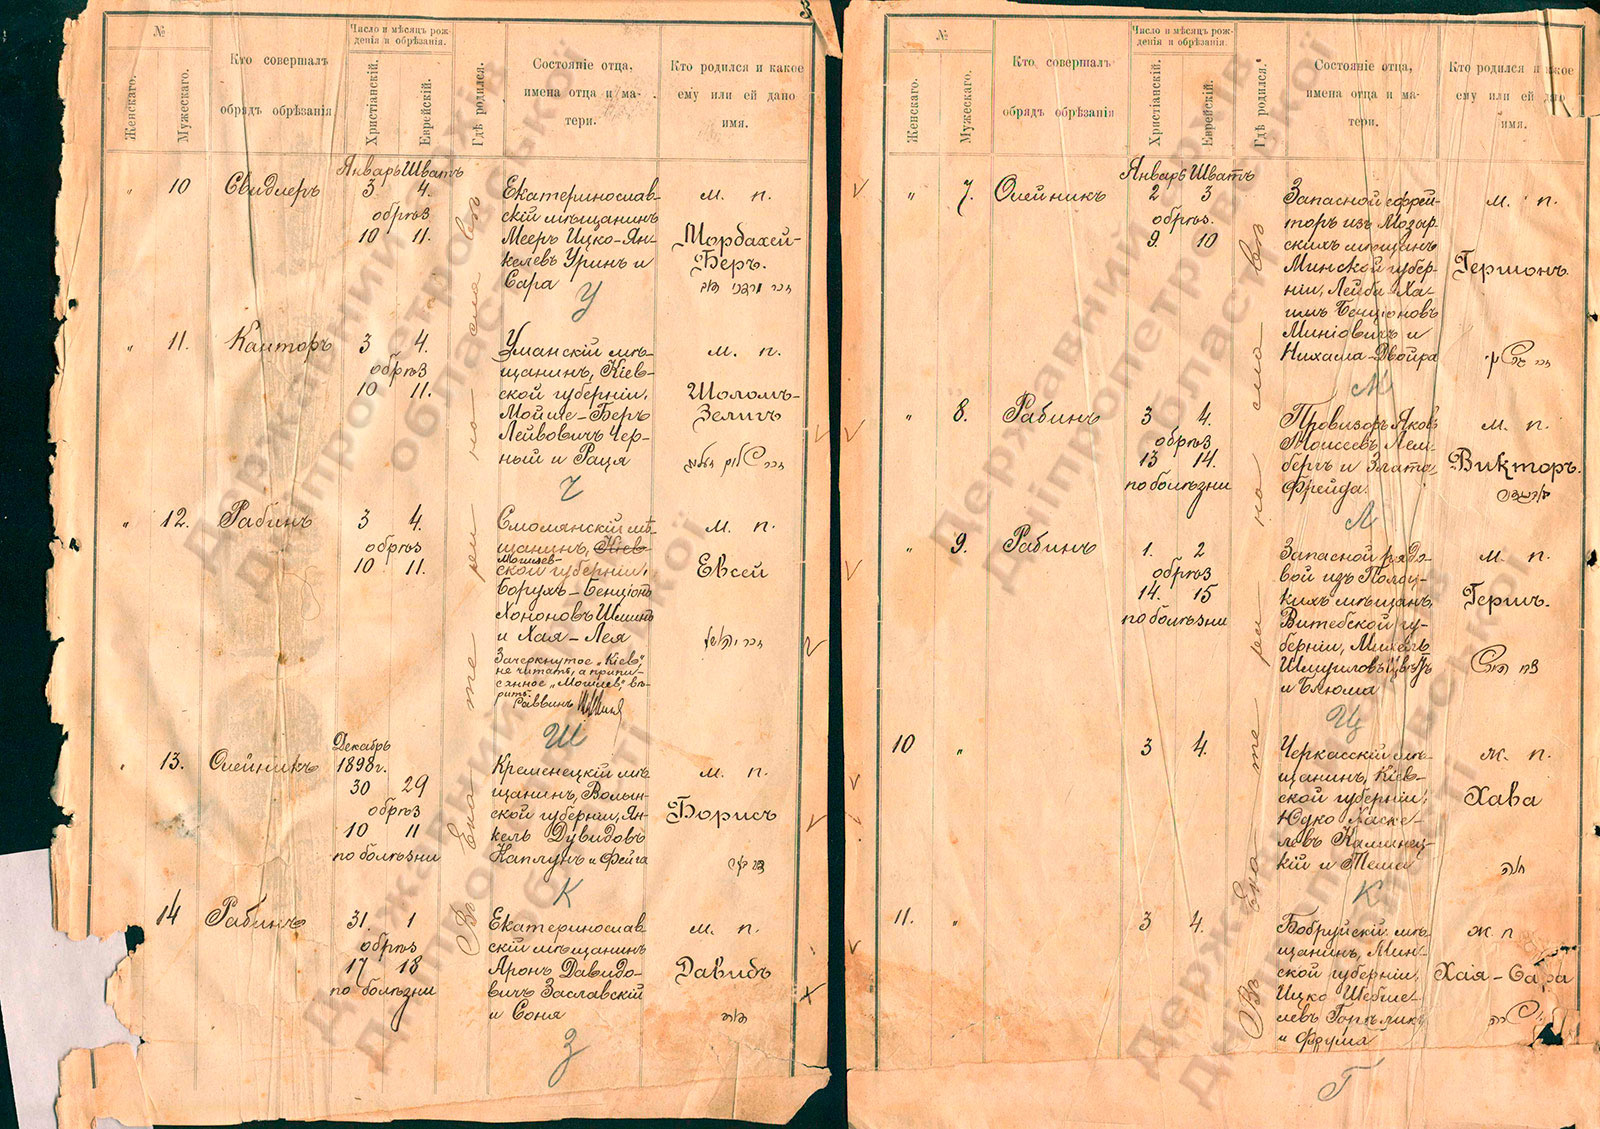 3
№
Женскаго.
Мужескаго.
Кто совершалъ
обрядъ обрѣзанія
Число и мѣсяцъ рож-
денія и обрѣзанія.
Христіанскій.
Еврейскій.
Гдѣ родился.
Состояніе отца,
имена отца и ма-
тери.
Кто родился и какое
ему или ей дано
имя.
Январь Шватъ
" 10 Свидлеръ 3 4.
обрѣз
10 11.
Екатеринослав-
скій мѣщанинъ
Мееръ Ицко-Ян-
келевъ Уринъ и
Сара
У
м. п.
Мордахей-
Беръ.
" 11. Канторъ 3 4.
обрѣз
10 11.
Уманскій мѣ-
щанинъ, Кіев-
ской губерніи,
Мойше-Беръ
Лейвовичъ Чер-
ный и Раця
Ч
м. п.
Шоломъ-
Зеличъ
" 12. Рабинъ 3 4.
обрѣз
10 11.
Смолянскій мѣ-
щанинъ, Кіев-
Могилев-
ской губерніи,
Борухъ-Бенціонъ
Хононовъ Шминъ
и Хая-Лея
Зачеркнутое „Кіев“,
не читать, а припи-
санное „Могилев“, вѣ-
рить.
Раввинъ
Ш
м. п.
Евсей
" 13. Олейникъ
Декабрь
1898г.
30 29
обрѣз
10 11
по болѣзни
Кременецкій мѣ-
щанинъ, Волын-
ской губерніи, Ян-
кель Дувидовъ
Каплунъ и Фейга
К
м. п.
Борисъ
14 Рабинъ 31. 1
обрѣз
17 18
по болѣзни
Екатеринослав-
скій мѣщанинъ
Аронъ Давидо-
вичъ Заславскій
и Соня
З
м. п.
Давидъ
דוד
Въ Екатеринославѣ
№
Женскаго.
Мужескаго.
Кто совершалъ
обрядъ обрѣзанія
Число и мѣсяцъ рож-
денія и обрѣзанія.
Христіанскій.
Еврейскій.
Гдѣ родился.
Состояніе отца,
имена отца и ма-
тери.
Кто родился и какое
ему или ей дано
имя.
Январь Шватъ
" 7. Олейникъ 2 3
обрѣз.
9. 10
Запасной ефрей-
торъ изъ Мозыр-
скихъ мѣщанъ
Минской губер-
ніи, Лейба-Ха-
имъ Бенціоновъ
Миніовичъ и
Нихама-Двойра
М
м. п.
Гершонъ
" 8. Рабинъ 3 4.
обрѣз
13 14.
по болѣзни
Провизоръ Яковъ
Моисеевъ Лем-
бергъ и Злата-
Фрейда.
Л
м. п.
Викторъ.
" 9. Рабинъ 1. 2
обрѣз
14. 15
по болѣзни
Запасной рядо-
вой изъ Полоц-
кихъ мѣщанъ,
Витебской гу-
берніи, Михель
Шмуиловъ
и Блюма
Ц
м. п.
Гершъ.
צבי הירש
10 " 3 4.
Черкасскій мѣ-
щанинъ, Кіев-
ской губерніи,
Юдко Хаске-
левъ Каминец-
кій и Тема
К
ж. п.
Хава
חוה
11. " 3 4.
Бобруйскій мѣ-
щанинъ, Мин-
ской губерніи,
Ицко Шебше-
левъ Горѣликъ
и Фрума
Г
ж. п
Хая-Сара
Въ Екатеринославѣ
Державний архів
Дніпропетровської
області